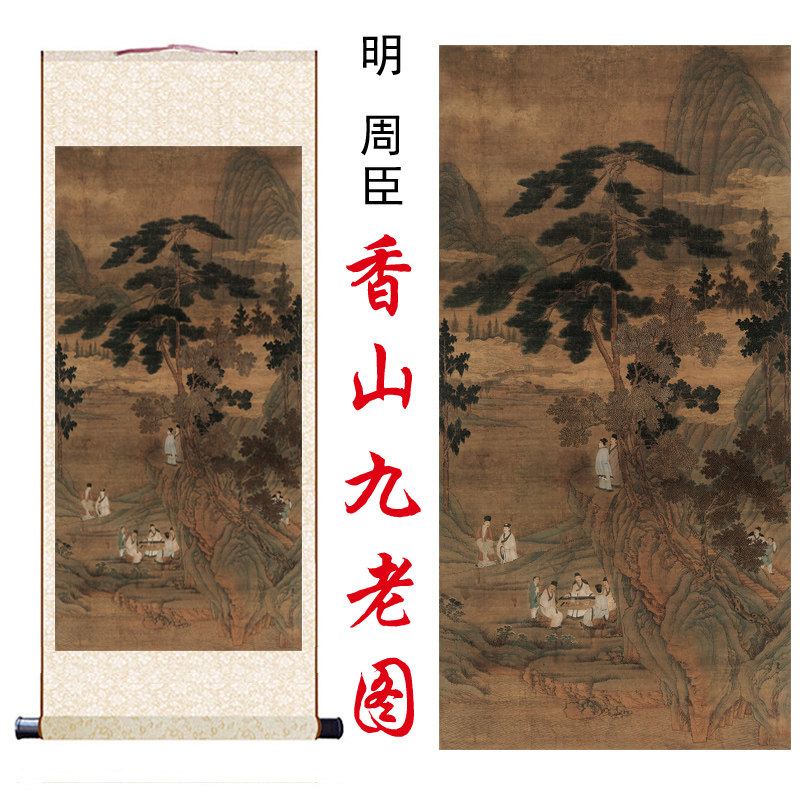 明 周臣
香山九老图